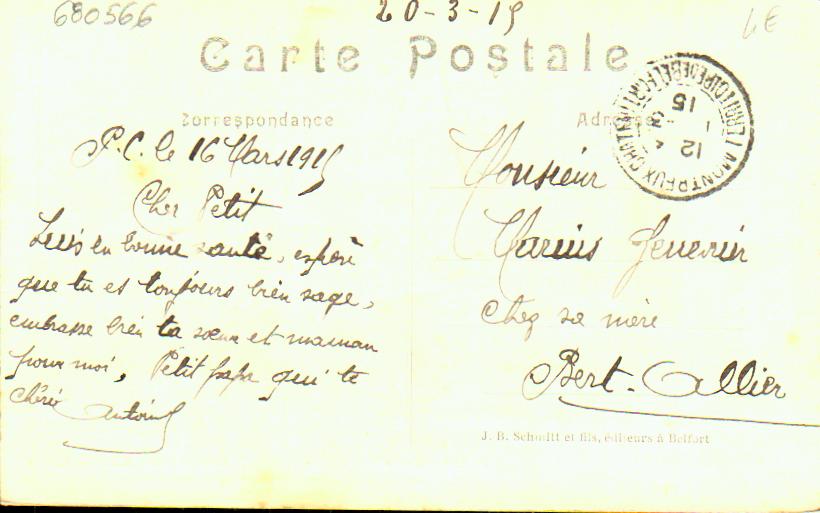 680566
20-3-15
Carte Postale
Correspondance
P.C. le 16 Mars 1915
Cher Petit
Suis en bonne santé, espère
que tu es toujours bien sage,
embrasse bien ta sœur et maman
pour moi, Petit papa qui te
chéri Antoine
Adresse
MONTREUX CHATEAU TERRITOIRE DE BELFORT
12
3
15
Monsieur
Marius
Chez sa mère
Bert-Allier
J. B. Schmitt et fils, éditeurs à Belfort